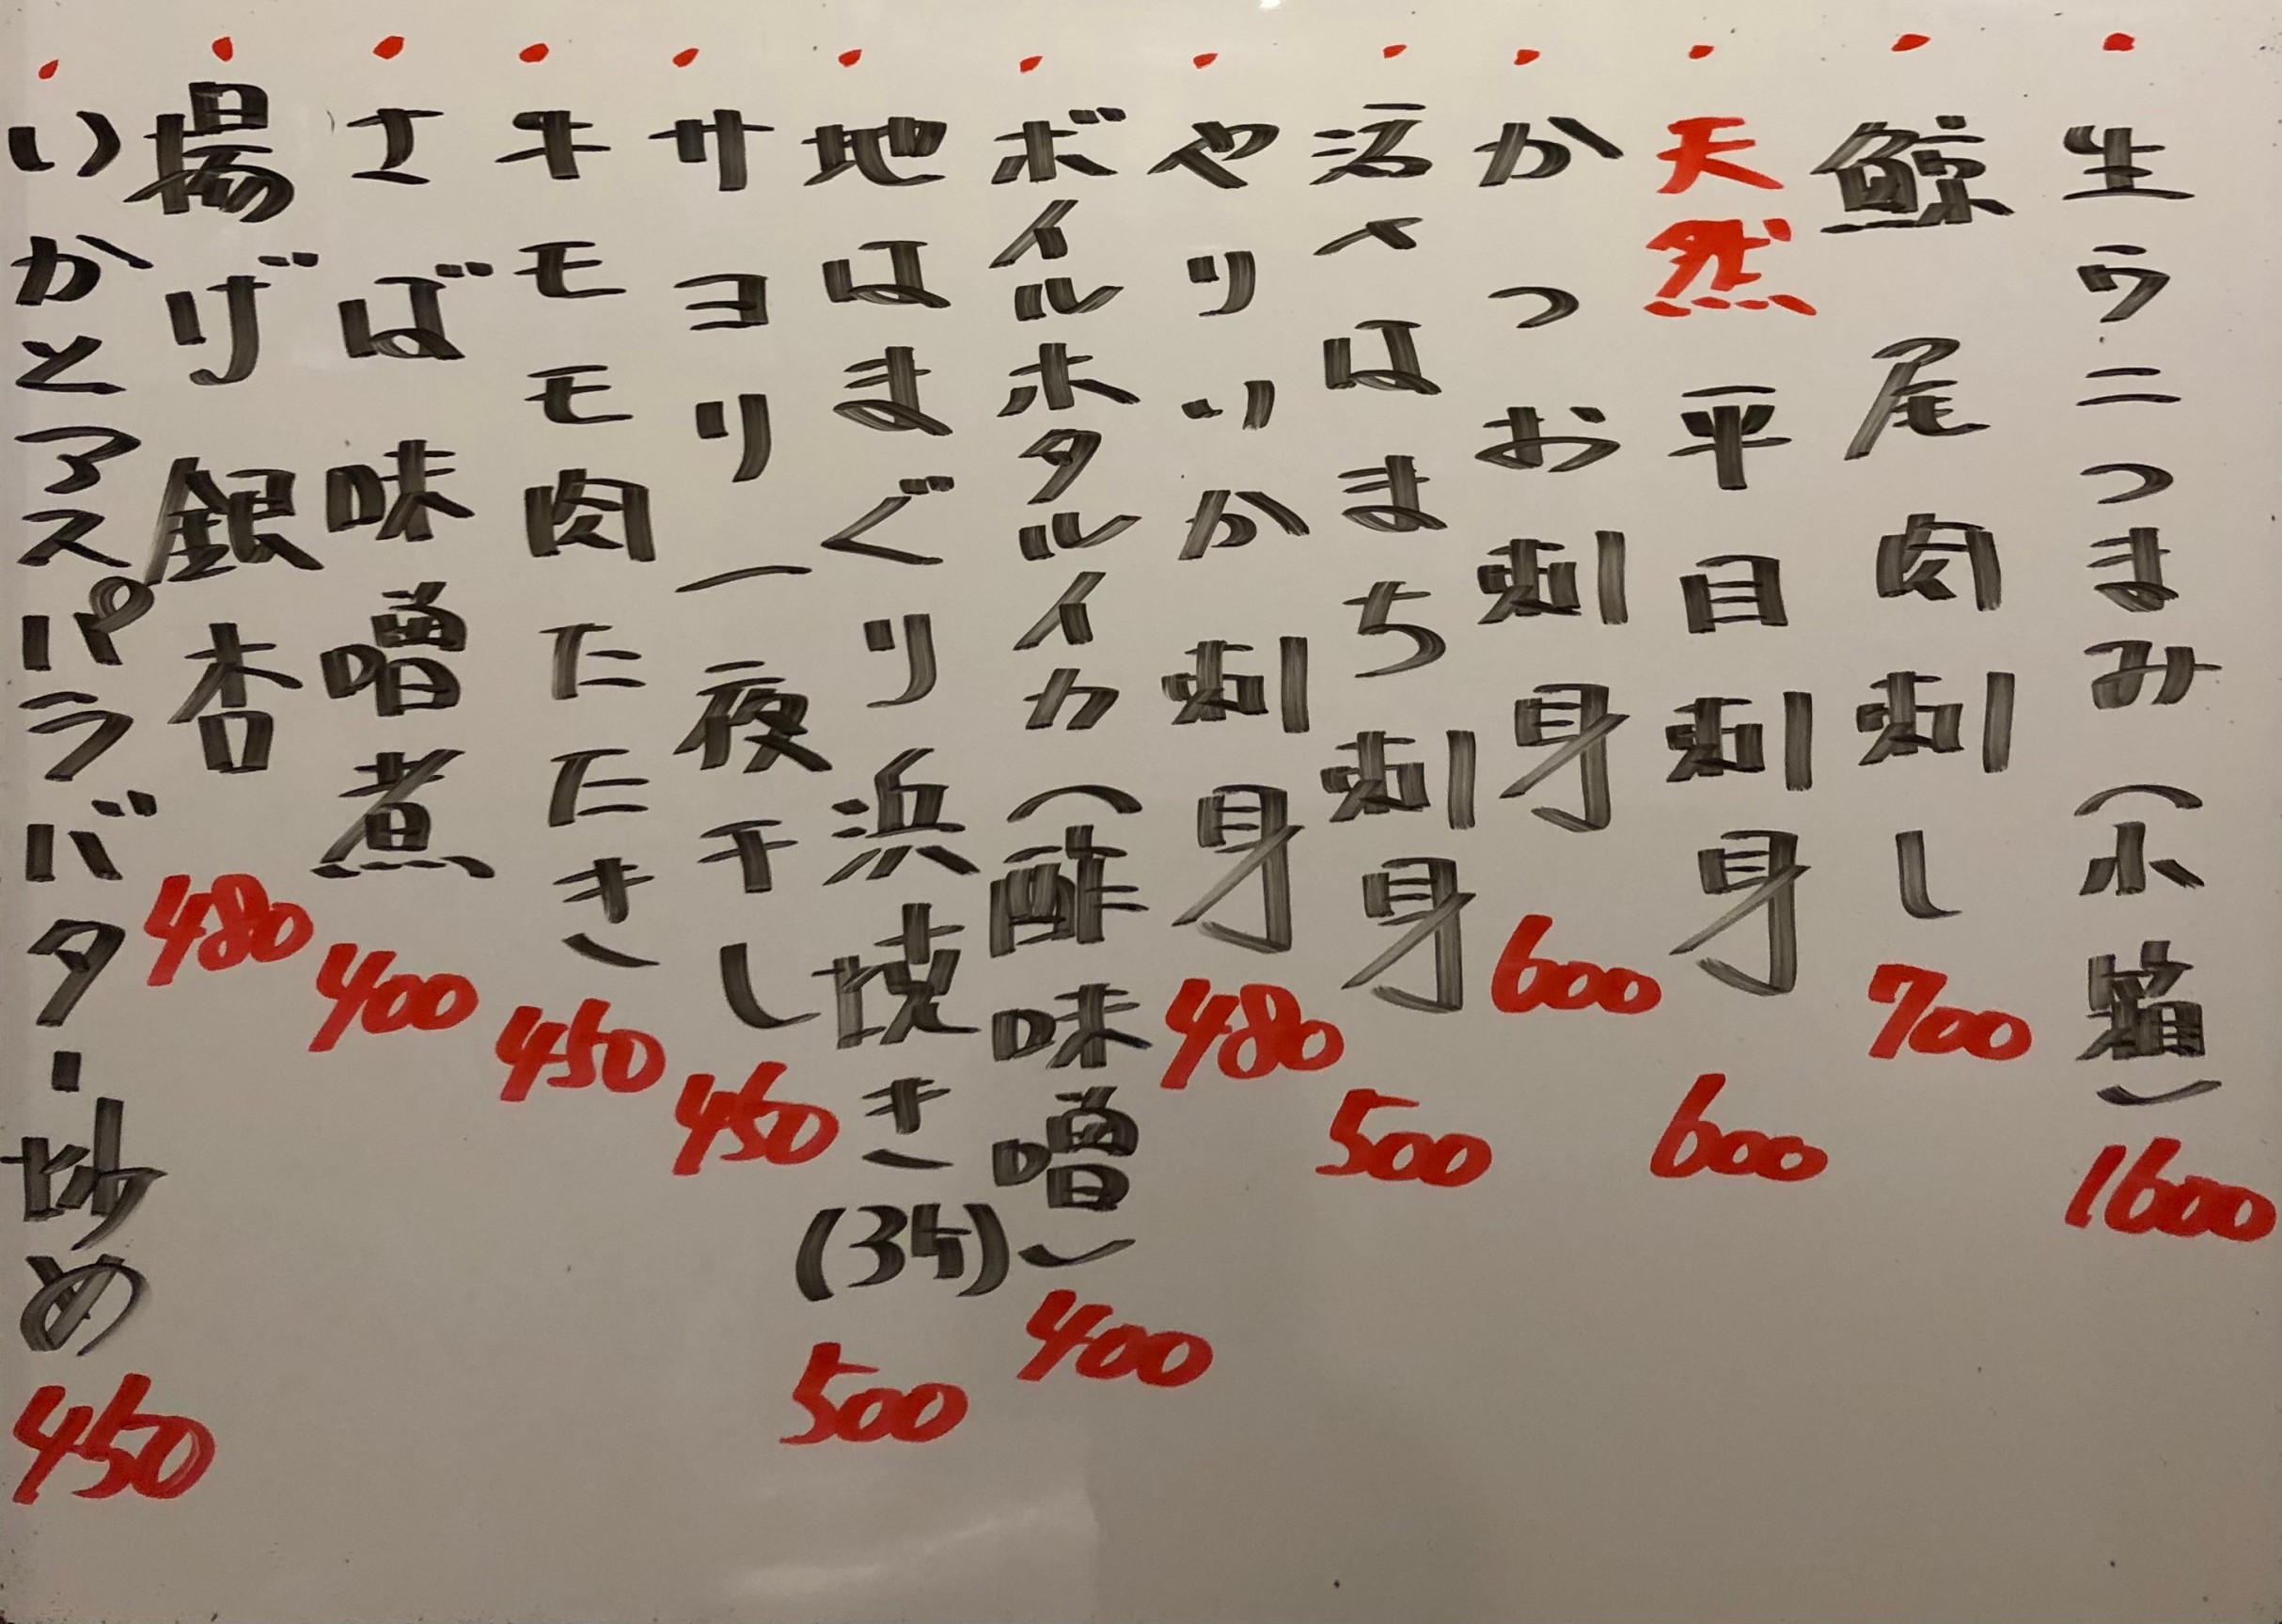 ・生ウニつまみ（小箱）1600
・鯨尾肉刺し700
・天然平目刺身600
・かつお刺身600
・活〆はまち刺身500
・やりいか刺身480
・ボイルホタルイカ（酢味噌）400
・地はまぐり浜焼き(3ケ)500
・サヨリ一夜干し450
・キモモ肉たたき450
・さば味噌煮400
・揚げ銀杏480
・いかとアスパラバター炒め450